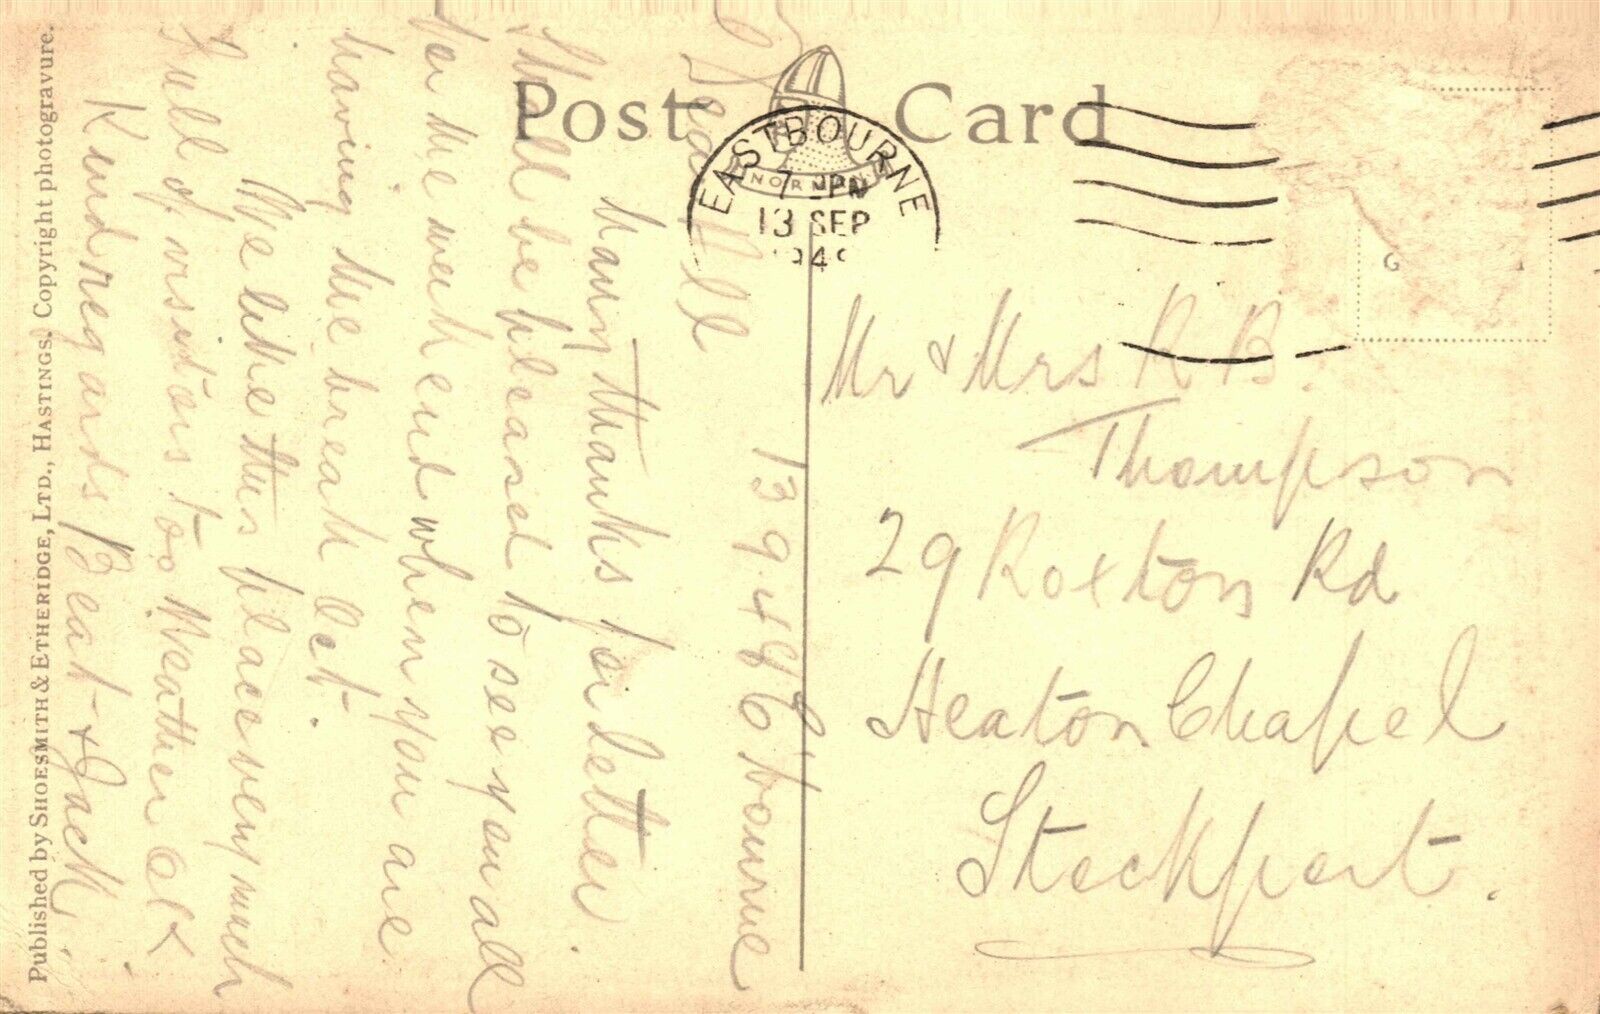 Post Card
NORMAN
EASTBOURNE
7 PM
13 SEP
194
Mr & Mrs R. B.
Thompson
29 Roxton Rd
Heaton Chapel
Stockport.
13.9.48 E'bourne
Dear All
Many thanks for letter.
Shall be pleased to see you all
for the weekend when you are
having the break Oct.
We like this place very much
Full of visitors too Weather OK
Kind regards Beat & Jack.
Published by SHOESMITH & ETHERIDGE, LTD., HASTINGS. Copyright photogravure.